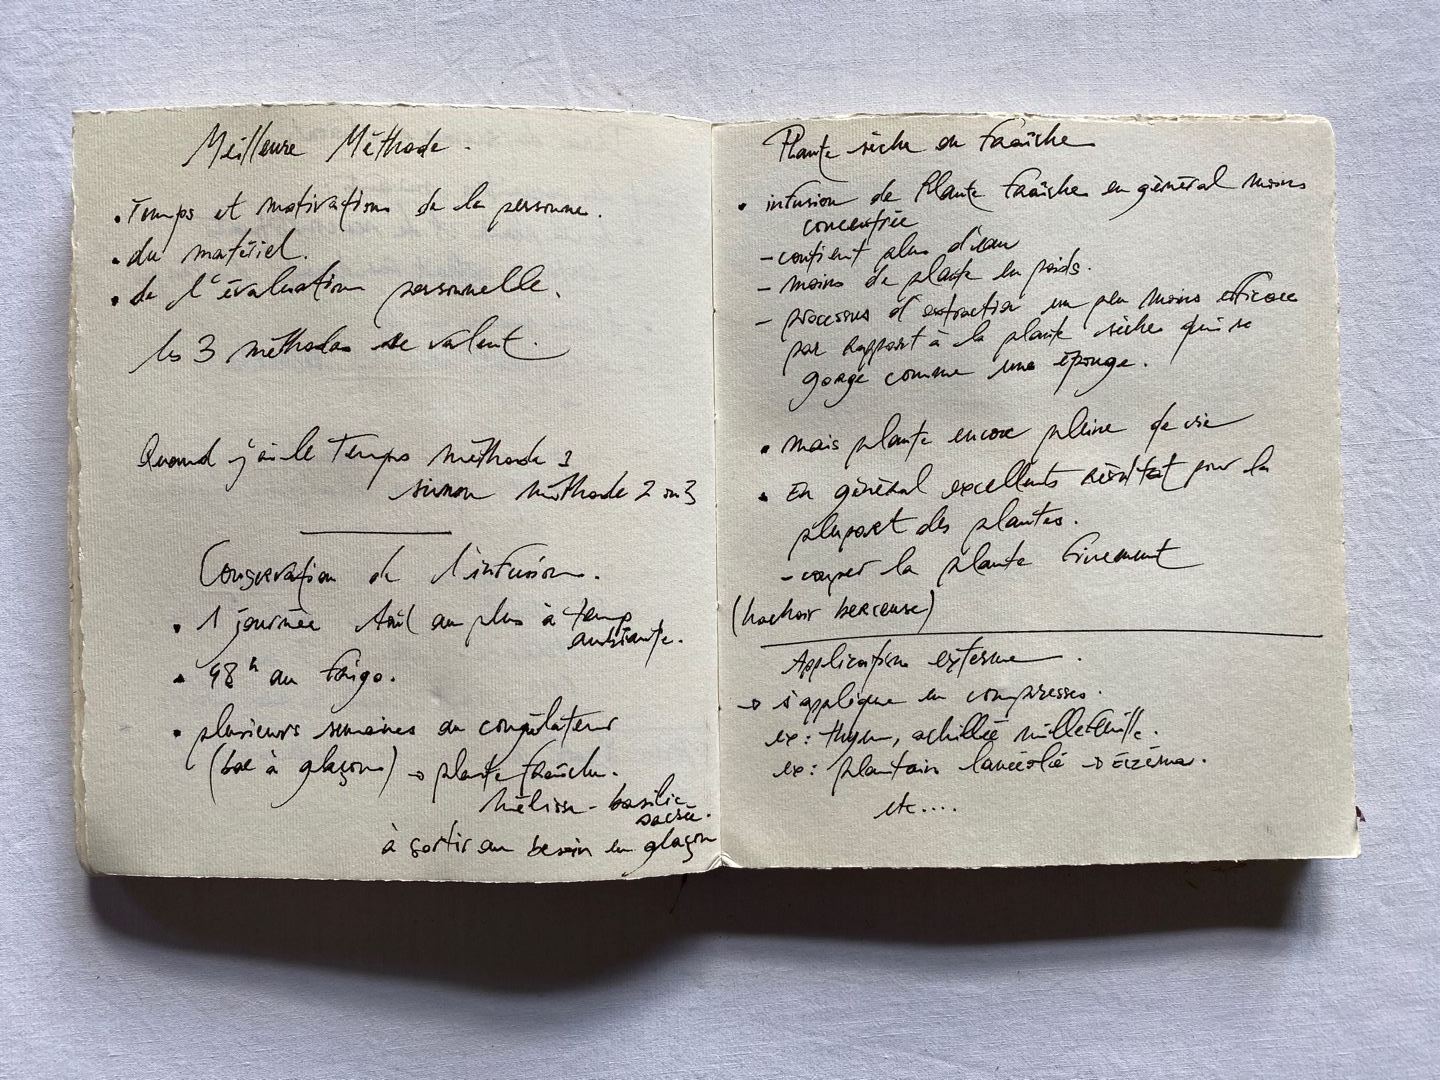 Meilleure Méthode.
• Temps et motivations de la personne.
• du matériel.
• de l'évaluation personnelle.
les 3 méthodes se valent.
Quand j'ai le Temps méthode
sinon méthode 2 ou 3
Conservation de l'infusion.
• 1 journée au plus à temp
ambiante.
• 48h au frigo.
• plusieurs semaines au congélateur
(bac à glaçons) → plante fraîche.
Mélisse - basilic
sacré.
à sortir au besoin en glaçon
Plante sèche ou fraîche
• infusion de Plante fraîche en général moins
concentrée
- contient plus d'eau
- moins de plante en poids.
- processus d'extraction un peu moins efficace
par rapport à la plante sèche qui se
gorge comme une éponge.
• mais plante encore pleine de vie
• En général excellents résultat pour la
plupart des plantes.
- couper la plante finement
(hachoir berceuse)
Application externe.
→ s'applique en compresses.
ex : thym, achillée millefeuille.
ex : plantain lancéolé → Eczéma.
etc....